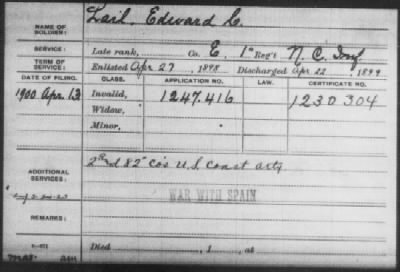 NAME OF SOLDIER: Lail, Edward C.
SERVICE: Late rank, Co. E, 1" Reg't N. C. Inf
TERM OF SERVICE: Enlisted Apr 27, 1898 Discharged Apr 22, 1899
DATE OF FILING. CLASS. APPLICATION NO. LAW. CERTIFICATE NO.
1900 Apr. 13 Invalid, 1247.416 1230304
Widow,
Minor,
ADDITIONAL SERVICES: 2nd 82" Co's U.S. Coast Arty
WAR WITH SPAIN
REMARKS:
Died , 1 , at